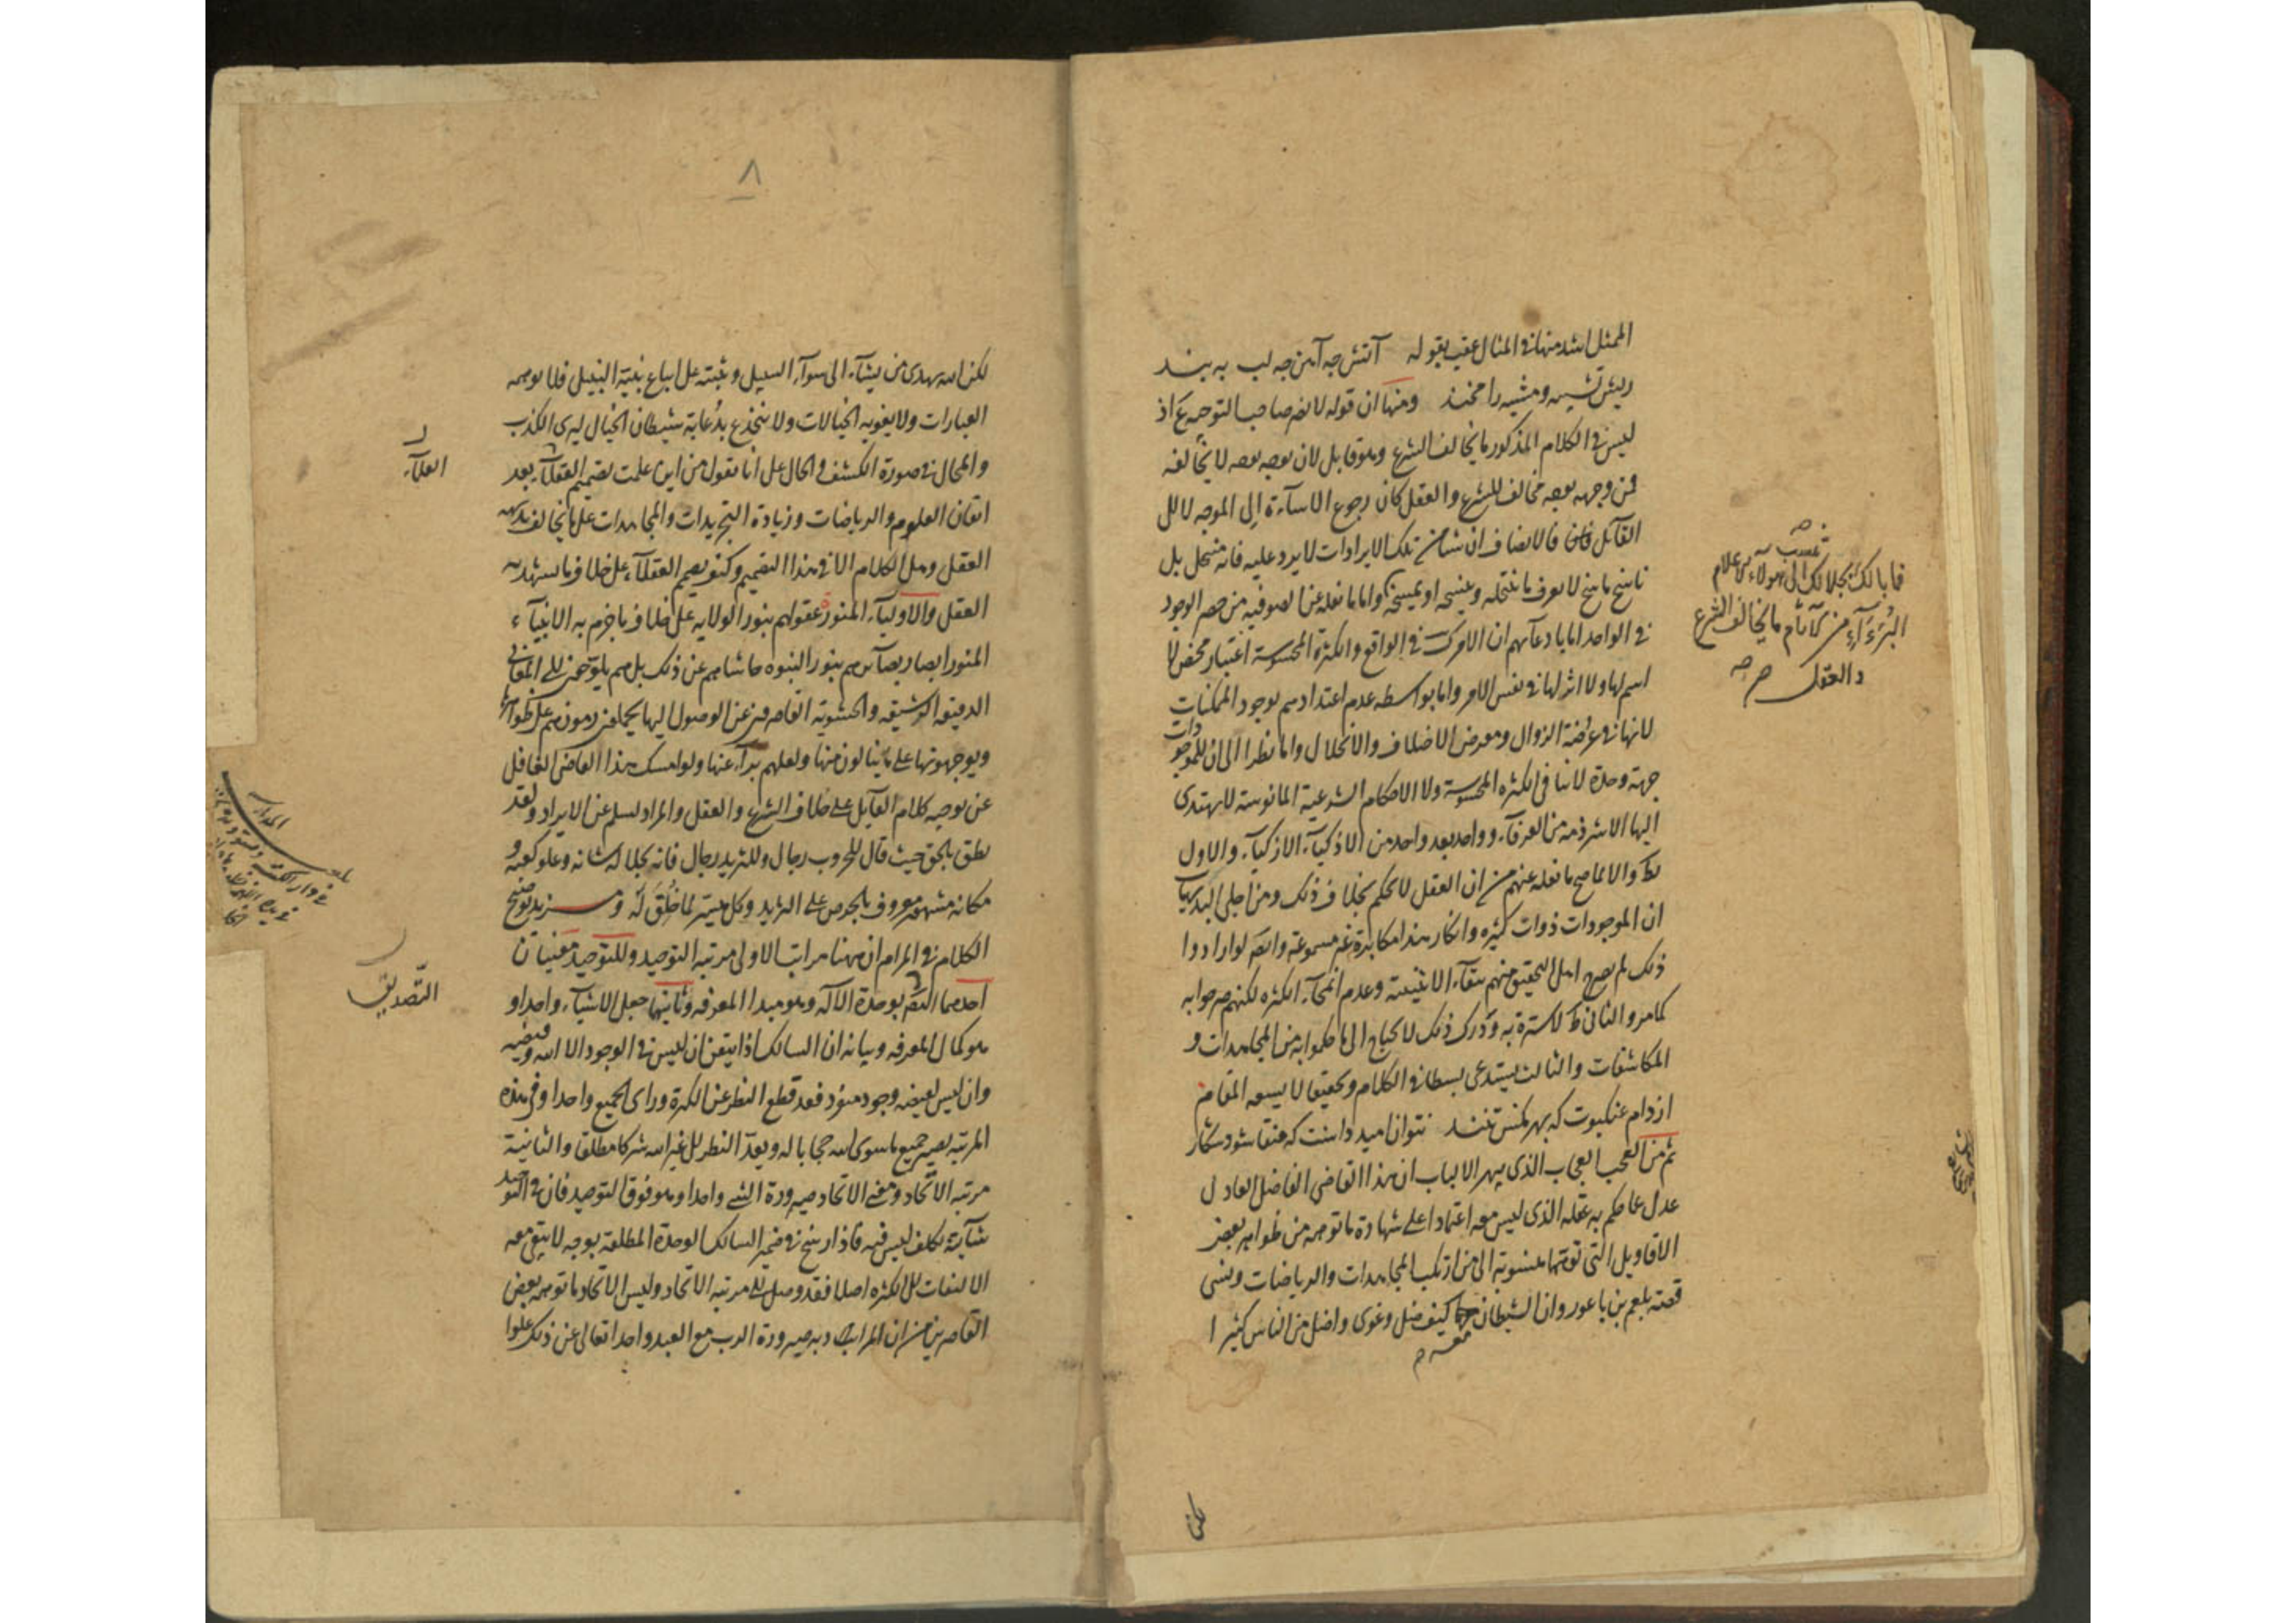 الممثل اشد منها في المثال عقب بقوله آتش چه آهن چه لب به بند
ريش تشبيه ومشبه را مخند ومنها ان قوله لا نضر صاحب التوحيد ع اذ
ليس في الكلام المذكور ما يخالف الشرع وهو قابل لان يوجه بوجه لا يخالفه
فمن وجهه بوجه مخالف للشرع والعقل كان رجوع الاساءة الى الموجه لا الى
القائل فالانصاف ان شيئا من تلك الايرادات لا يرد عليه فانه منتحل بل
ناسخ ماسخ لا يعرف ما ينتحله وينسخه او يمسخه واما ما نقله عن الصوفية من حصر الوجود
في الواحد اما بادعائهم ان الامر كذلك في الواقع والكثرة المحسوسة اعتبار محض لا
اسم لها ولا اثر لها في نفس الامر واما بواسطه عدم اعتدادهم بوجود الممكنات
لانها في عرضة الزوال ومعرض الاختلاف والانحلال واما نظرا الى ان للموجودات
جهة وحدة لا تنافي الكثرة المحسوسة ولا الاحكام الشرعية المأنوسة لا يهتدى
اليها الا شرذمة من العرفاء وواحد بعد واحد من الاذكياء الازكياء والاول
والا لما صح ما نقله عنهم من ان العقل لا يحكم بخلاف ذلك ومن اجلى البديهيات
ان الموجودات ذوات كثيره وانكار هذا مكابرة غير مسموعة وايضا لو ارادوا
ذلك لم يصرح اهل التحقيق منهم ببقاء الاثنينية وعدم انمحاء الكثره لكنهم صرحوا به
كما مر والثاني لا سترة به ودرك ذلك لا يحتاج الى ما حكموا به من المجاهدات و
المكاشفات والثالث يستدعى بسطا في الكلام وتحقيقا لا يسعه المقام
از دام عنكبوت كه بهر مگس تنند نتوان اميد داشت كه عنقا شود شكار
ثم من العجب العجاب الذى يبهر الالباب ان هذا القاضى الفاضل العادل
عدل عما حكم به عقله الذى ليس معه اعتمادا على شهادة ما توهمه من ظواهر بعض
الاقاويل التى توهمها منسوبة الى من ارتكب المجاهدات والرياضات ونسى
قصة بلعم بن باعور وان الشيطان كيف ضل وغوى واضل من الناس كثيرا
فما بالك بجلالك تنسب الى هولاء الاعلام
البرءاء من الآثام ما يخالف الشرع
والعقل صح
لكنا
٨
لكن الله يهدى من يشاء الى سواء السبيل ويثبته على اتباع نبيه النبيل فلا توهمه
العبارات ولا يغويه الخيالات ولا ينخدع بدعابة شيطان الخيال ليرى الكذب
والمحال في صورة الكشف والحال على انا نقول من اين علمت تصميم العقلاء بعد
اتقان العلوم والرياضات وزيادة التجريدات والمجاهدات على ما يخالف بديهة
العقل وهل الكلام الا في هذا التصميم وكيف يصمم العقلاء على خلاف ما يشهد به
العقل والاولياء المنور عقولهم بنور الولاية على خلاف ما جزم به الانبياء
المنور ابصار بصائرهم بنور النبوه حاشاهم عن ذلك بل هم يلوحون الى المعانى
الدقيقه الرشيقه والحشوية القاصرون عن الوصول اليها يحملون رموزهم على ظواهرها
ويوجهونها على ما ينالون منها ولعلهم براء عنها ولو امسك هذا القاضى الغافل
عن توجيه كلام القائل على خلاف الشرع والعقل والمراد لسلم عن الايراد ولقد
نطق بالحق حيث قال للحروب رجال وللثريد رجال فانه بجلالة شانه وعلو كعبه و
مكانه مشهور معروف بالحرص على الثريد وكل ميسر لما خلق له ومزيد توضيح
الكلام في المرام ان ههنا مراتب الاولى مرتبه التوحيد وللتوحيد معنيان
احدهما التصديق بوحدة الآله وهو مبدا المعرفه وثانيها جعل الاشياء واحدا و
هو كمال المعرفه وبيانه ان السالك اذا تيقن ان ليس في الوجود الا الله وفيضه
وان ليس لفيضه وجود منفرد فقد قطع النظر عن الكثرة وراى الجميع واحدا وفي هذه
المرتبه يصير جميع ما سوى الله حجابا له ويعد النظر الى غير الله شركا مطلقا والثانية
مرتبه الاتحاد ومعنى الاتحاد صيرورة الشئ واحدا وهو فوق التوحيد فان في التوحيد
شائبة تكلف ليس فيه فاذا رسخ في ضمير السالك الوحدة المطلقة بوجه لا يبقى معه
الالتفات الى الكثره اصلا فقد وصل الى مرتبه الاتحاد وليس الاتحاد ما توهمه بعض
القاصرين من ان المراد به صيرورة الرب مع العبد واحدا تعالى عن ذلك علوا
العلماء
التصديق